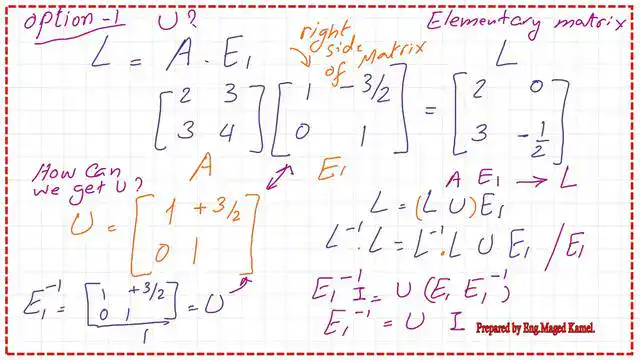 option-1 U?
Elementary matrix
L = A . E₁
right side of Matrix
L
[2 3; 3 4] [1 -3/2; 0 1] = [2 0; 3 -1/2]
A
E₁
A E₁ → L
How Can we get U?
U = [1 +3/2; 0 1]
L = (L U) E₁
L⁻¹. L = L⁻¹. L U E₁ / E₁
E₁⁻¹ = [1 +3/2; 0 1] = U
1
E₁⁻¹ I = U (E₁ E₁⁻¹)
E₁⁻¹ = U I
Prepared by Eng.Maged Kamel.